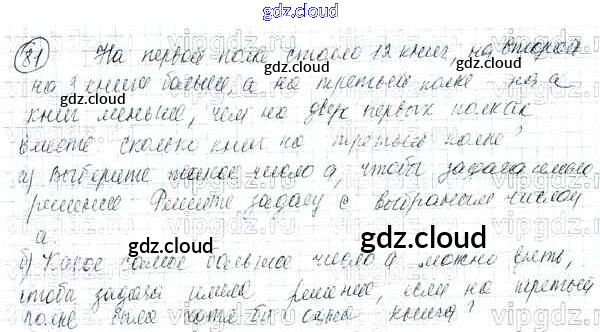 gdz.cloud
81 На первой полке стояло 12 книг, на второй
на 3 книги больше, а на третьей полке - на а
книг меньше, чем на двух первых полках
вместе сколько книг на третьей полке?
а) Выберите такое число а, чтобы задача имела
решение. Решите задачу с выбраным числом
а.
б) Какое самое большое число а можно взять,
чтобы задача имела решение, если на третьей
полке была хотя бы одна книга?
gdz.cloud
gdz.cloud
gdz.cloud
gdz.cloud
gdz.cloud
gdz.cloud